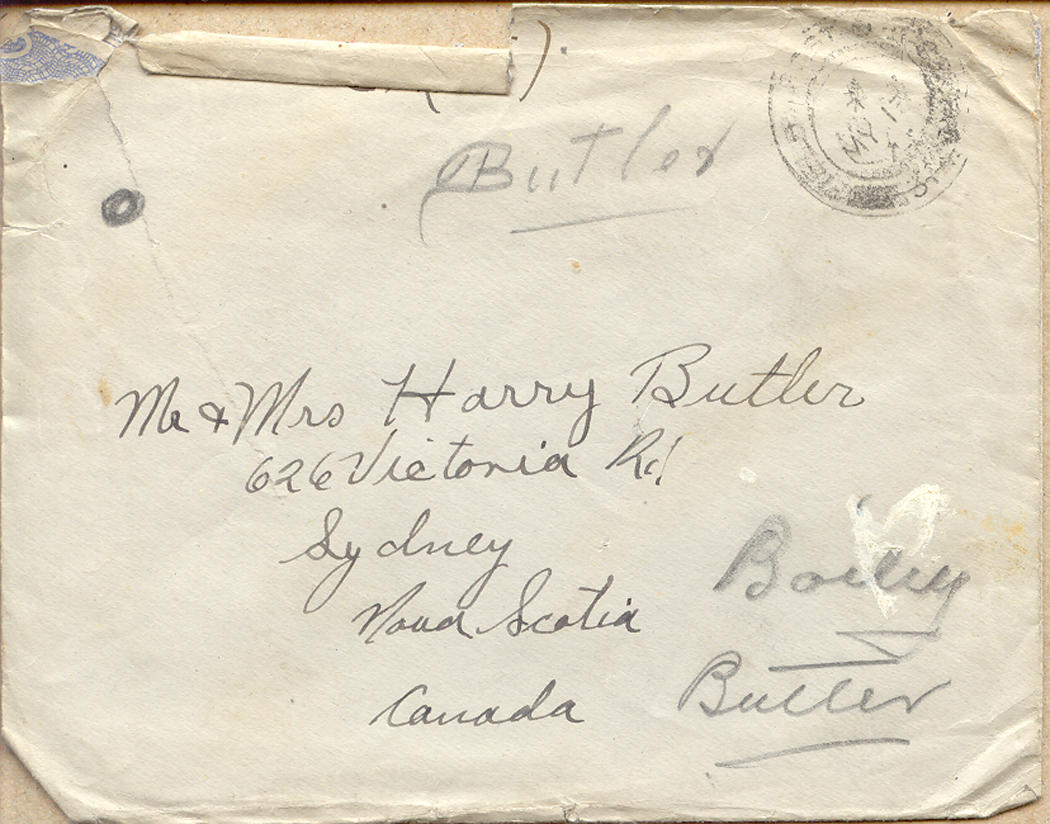 Butler
Mr & Mrs Harry Butler
626 Victoria Rd
Sydney
Nova Scotia
Canada
Butler